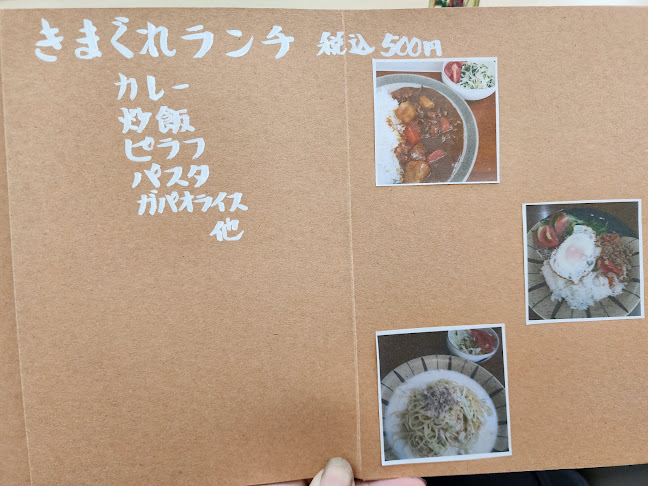 きまぐれランチ 税込500円
カレー
炒飯
ピラフ
パスタ
ガパオライス
他